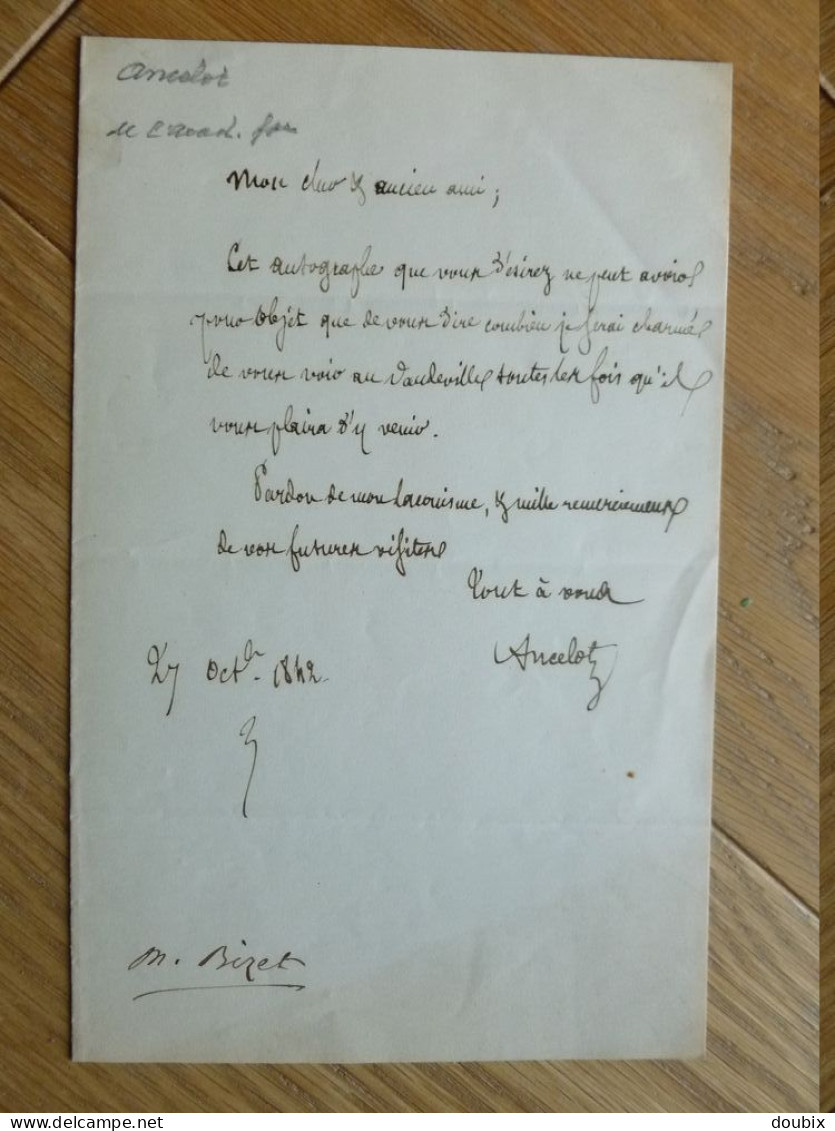 Ancelot
de l'acad. fse
Mon cher & ancien ami;
Cet autographe que vous désirez ne peut avoir
pour objet que de vous dire combien je serai charmé
de vous voir au Vaudeville toutes les fois qu'il
vous plaira d'y venir.
Pardon de mon laconisme, & mille remerciemens
de vos futures visites
Tout à vous
Ancelot
27 Octbr 1842.
M. Bizet
doubix